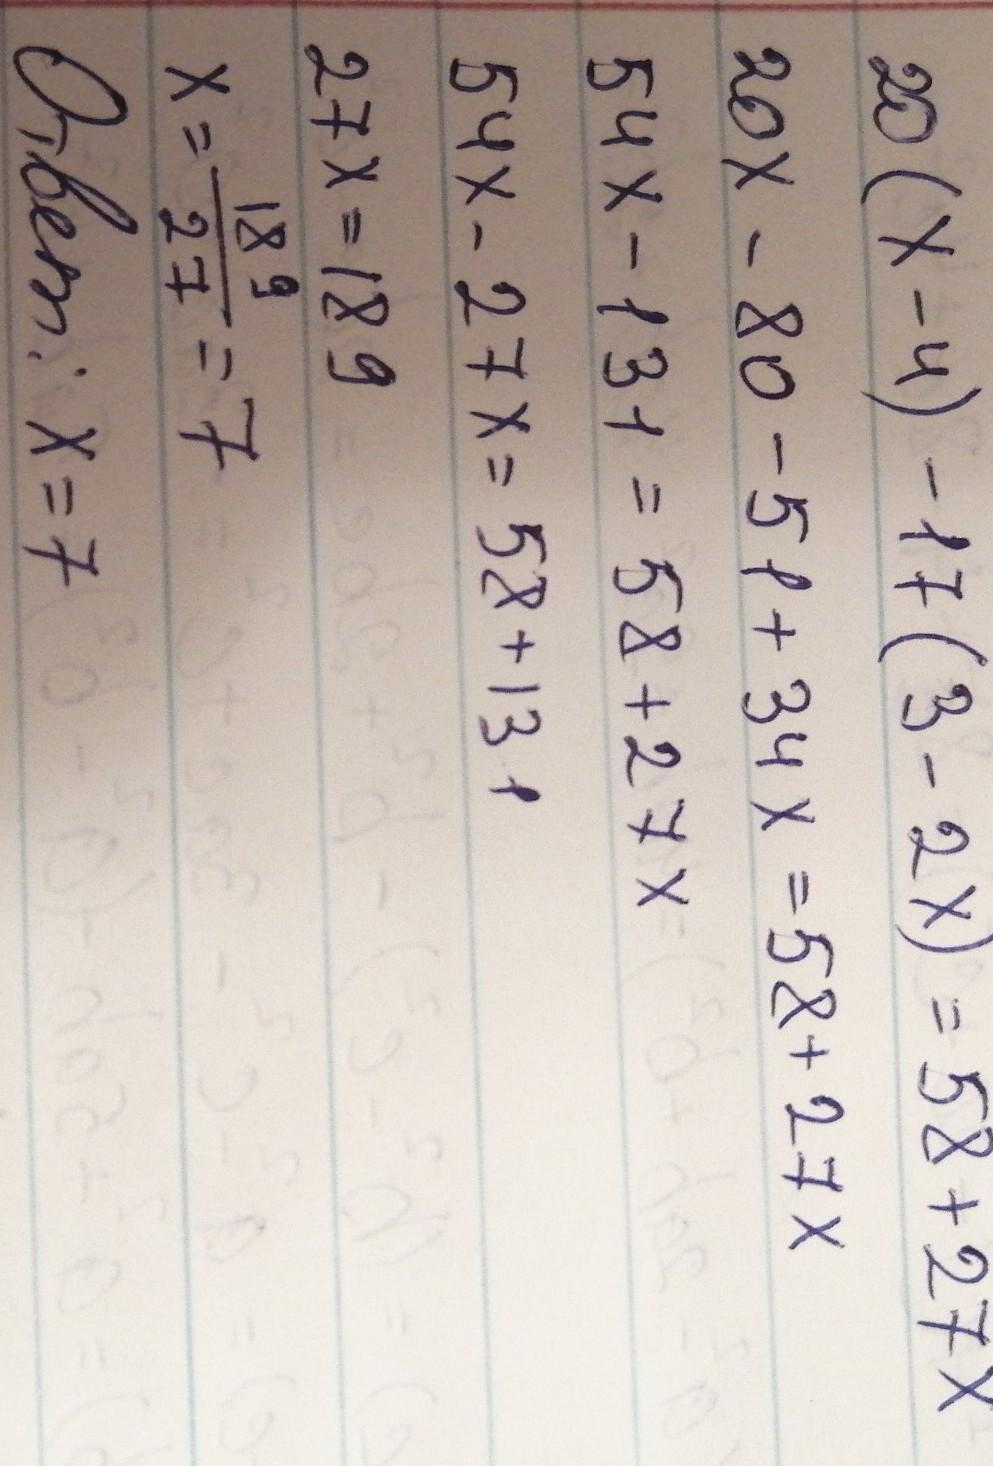 20(x-4)-17(3-2x)=58+27x
20x-80-51+34x=58+27x
54x-131=58+27x
54x-27x=58+131
27x=189
x=189/27=7
Ответ: x=7